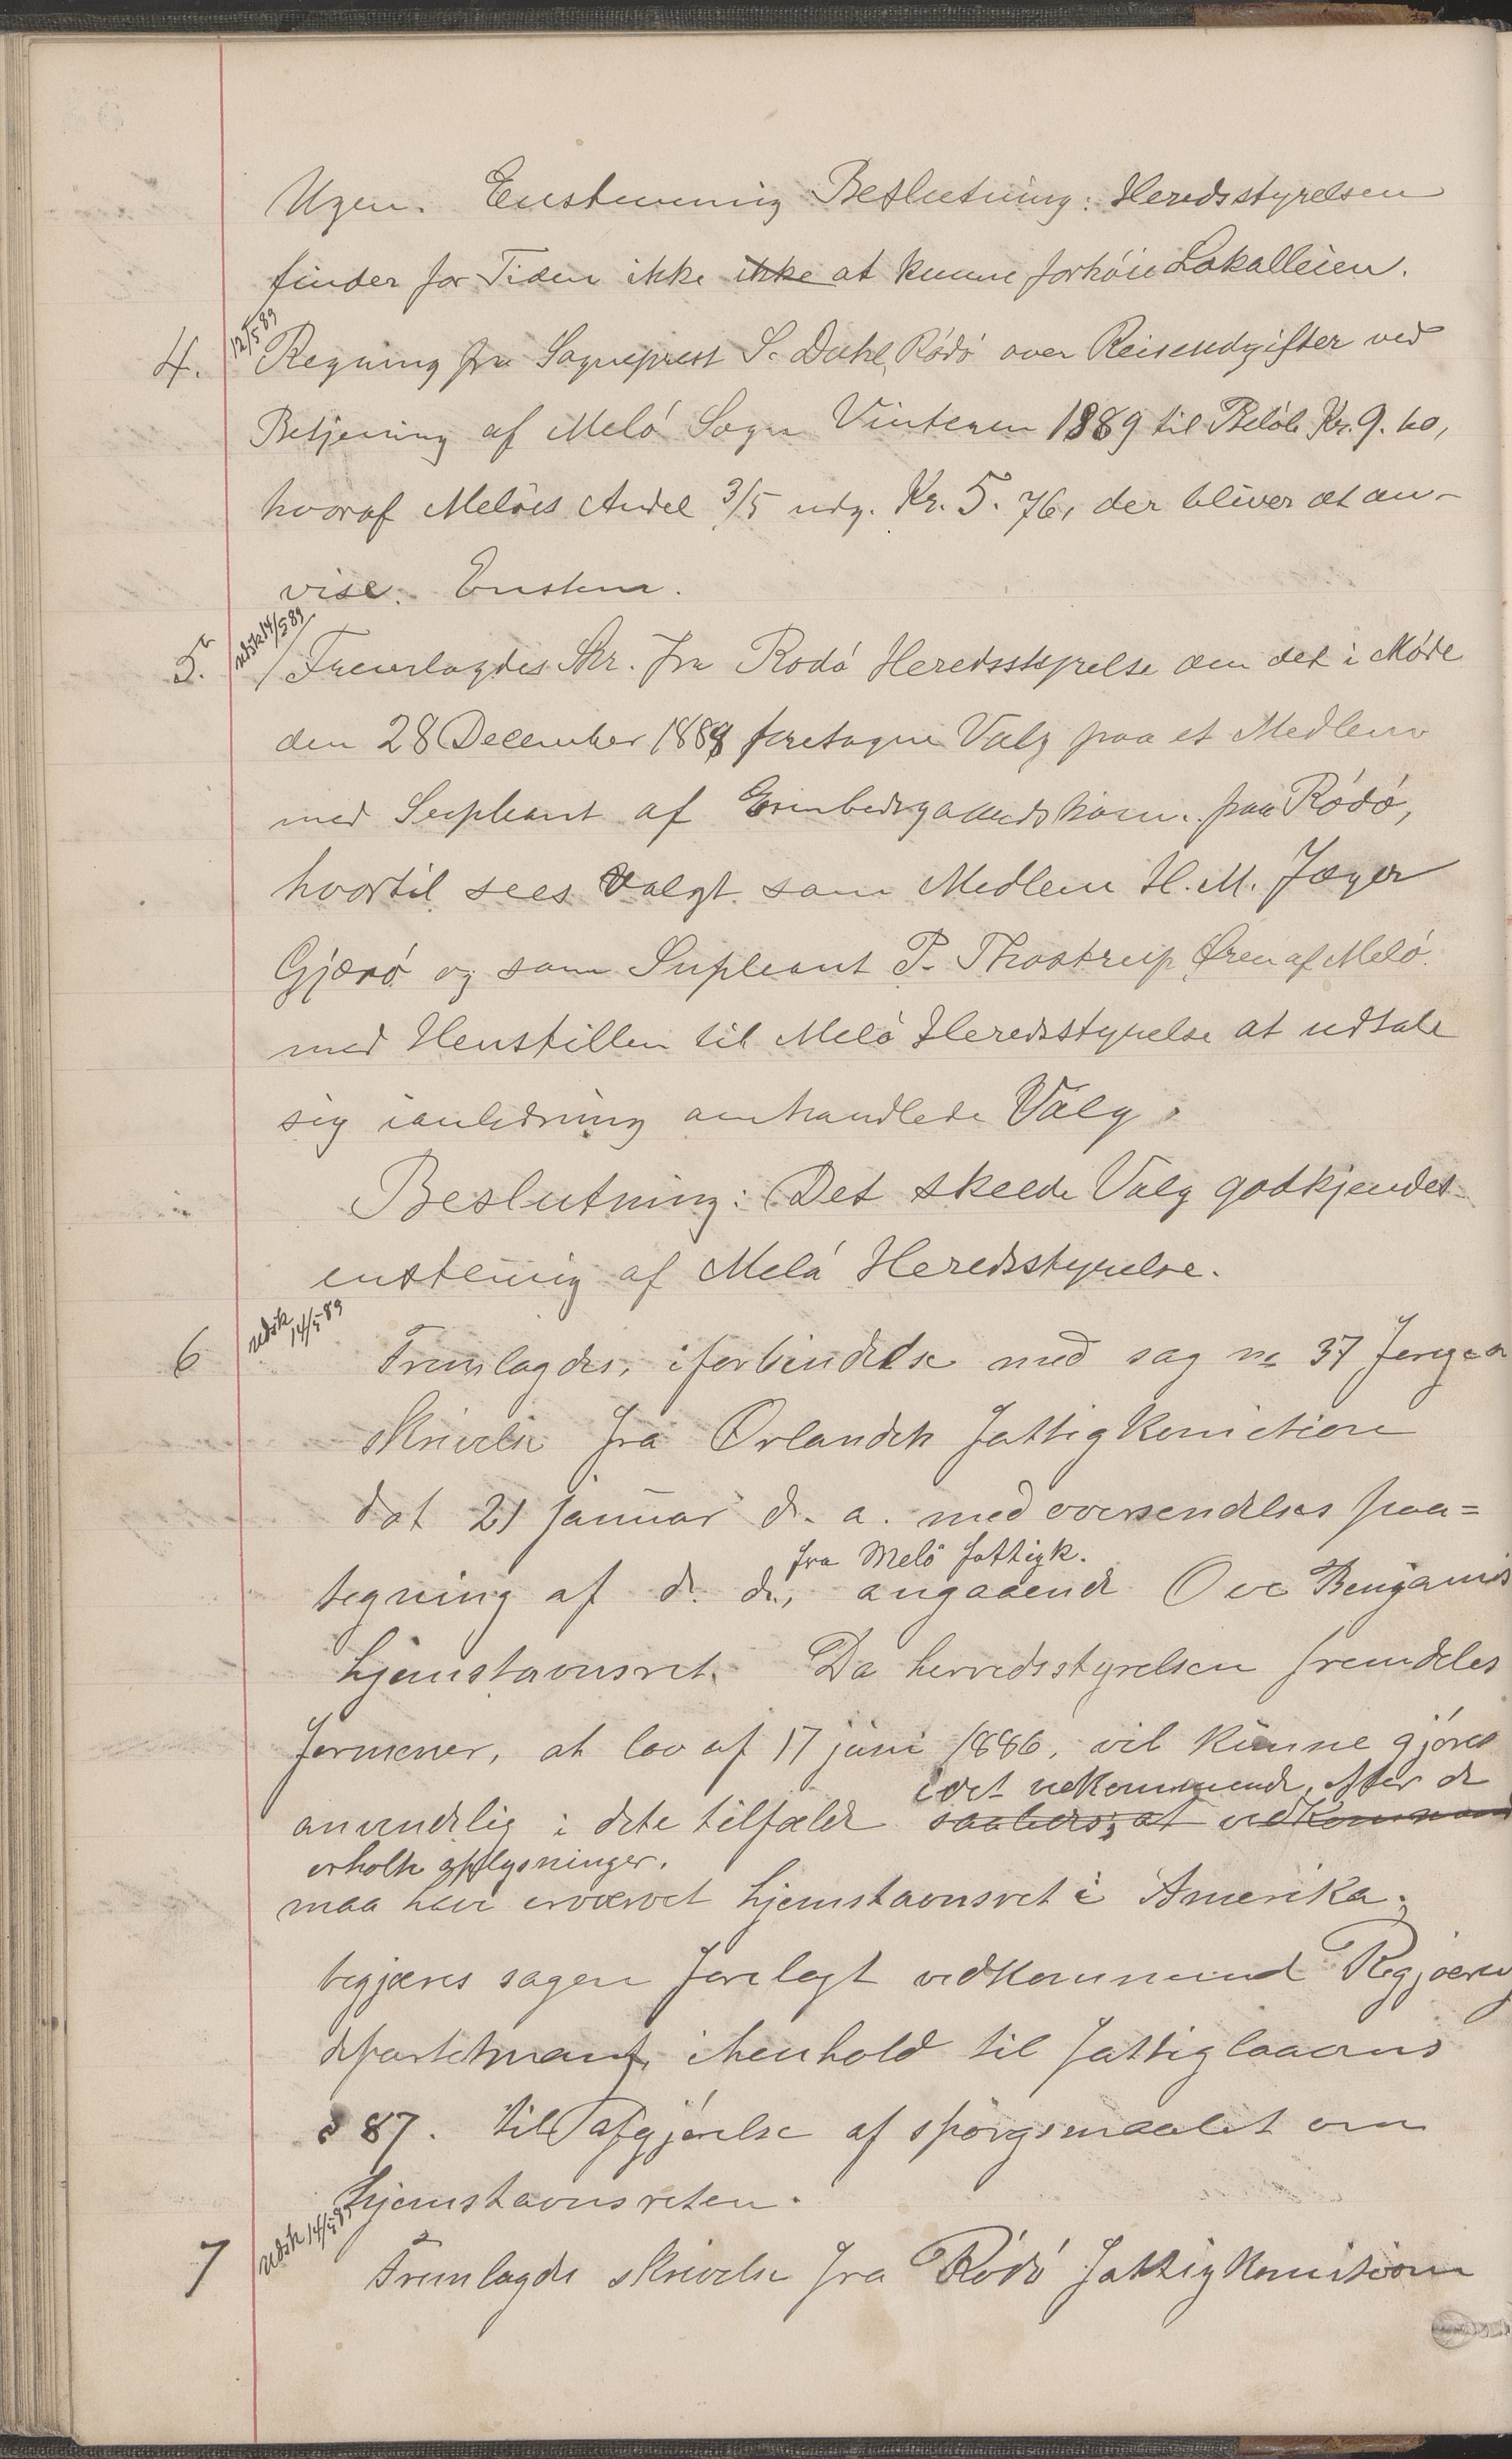 Ugen. Enstemmig Beslutning: Heredsstyrelsen
finder for Tiden ikke ikke at kunne forhöie Lokalleien.
12/5 89
4. Regning fra Sogneprest S. Dahl, Rödö over Reiseudgifter ved
Betjening af Melö Sogn Vinteren 1889 til Belöb Kr. 9. 60,
hvoraf Melöes Andel 3/5 udg. Kr. 5. 76, der bliver at an-
vise. Enstem.
udsk 14/5 89
5. Fremlagdes Skr. fra Rodö Heredsstyrelse om det i Möde
den 28 December 1888 foretagne Valg paa et Medlem
med Supleant af paa Rödö,
hvortil sees valgt som Medlem H. M. Jæger
Gjærö og som Supleant P. Thostrup Ören af Melö
med Henstillen til Melö Heredsstyrelse at udtale
sig ianledning omhandlede Valg.
Beslutning: Det skeede Valg godkjendes
enstemig af Melö Heredsstyrelse.
udsk 14/5 89
6 Fremlagdes, iforbindelse med sag no 37 f
skrivelse fra Örlandets fattigkomistion
dat 21 januar d. a. med oversendelses paa=
fra Melö fattigk.
tegning af d. d., angaaende Ove Benjamins
hjemstavnsret. Da herredsstyrelsen fremdeles
formener, at lov af 17 juni 1886, vil kunne gjöres
idet vedkommende, efter de
anvendelig i dete tilfælde saaledes, at vedkommende
erholte oplysninger.
maa have erværvet hjemstavnsret i Amerika;
begjæres sagen forelagt vedkommend Regjærings
departetmant, ihenhold til fattiglovens
§ 87. til afgjörelse af spörgsmaalet om
hjemstavnsreten.
udsk 14/5 89
7 Fremlagdes skrivelse fra Rödö fattigkomistion